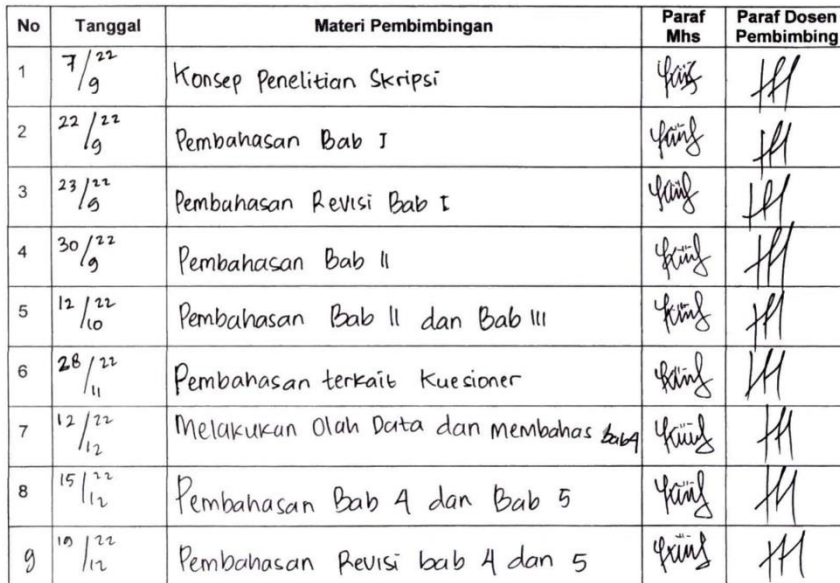 No Tanggal Materi Pembimbingan Paraf Mhs Paraf Dosen Pembimbing
1 7/9 22 Konsep Penelitian Skripsi
2 22/9 22 Pembahasan Bab I
3 23/9 22 Pembahasan Revisi Bab I
4 30/9 22 Pembahasan Bab II
5 12/10 22 Pembahasan Bab II dan Bab III
6 28/11 22 Pembahasan terkait Kuesioner
7 12/12 22 Melakukan Olah Data dan membahas bab 4
8 15/12 22 Pembahasan Bab 4 dan Bab 5
9 /12 22 Pembahasan Revisi bab 4 dan 5